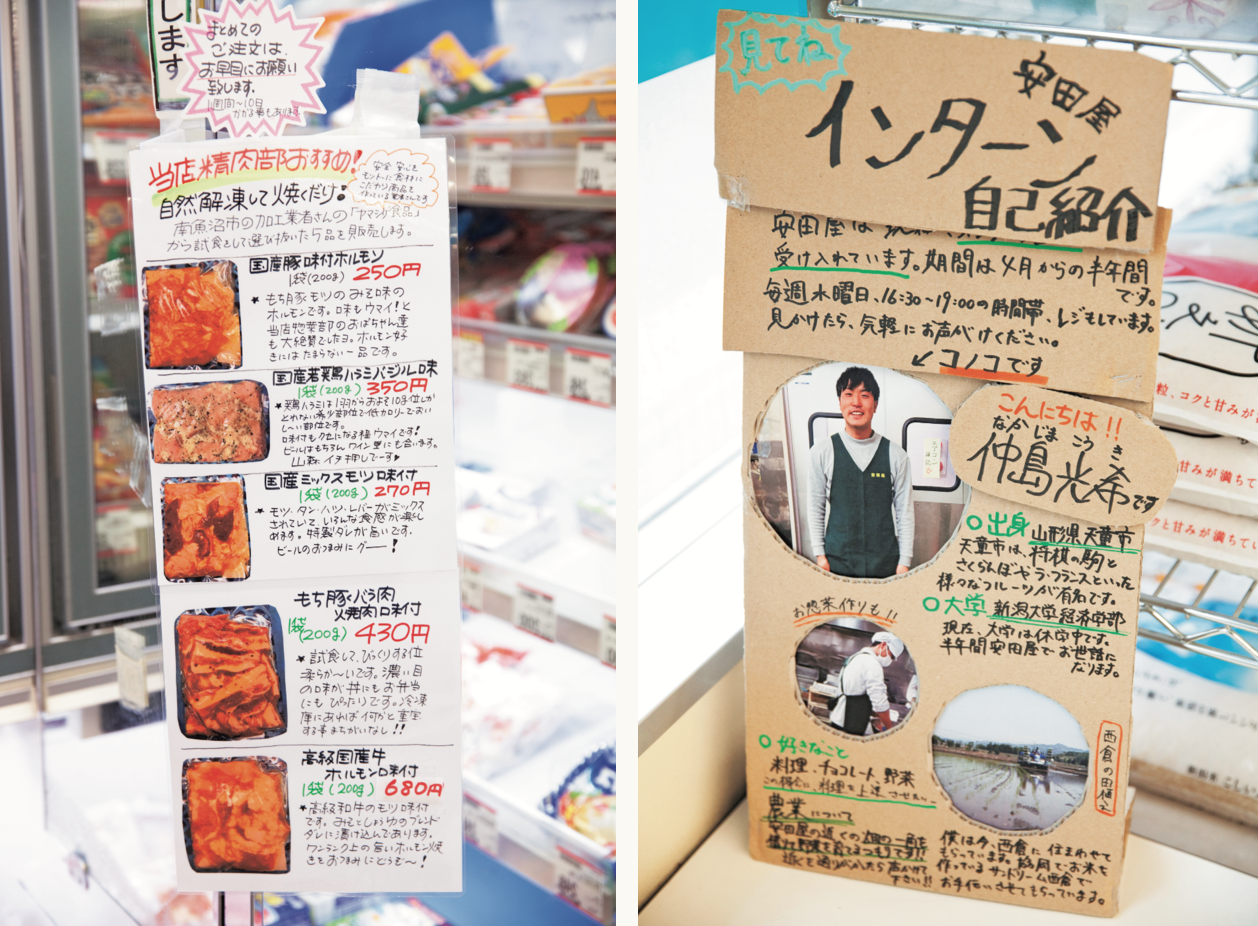 します
まとめての
ご注文は、
お早目にお願い
致します。
1週間〜10日
かかる事もあります。
当店精肉部おすすめ!
安全 安心を
モットーに食材に
こだわり商品を
作っている業者さんです
自然解凍して焼くだけ!
南魚沼市の加工業者さんの「ヤマシタ食品」
から試食をして選び抜いた5品を販売します。
国産豚味付ホルモン
1袋(200g) 250円
★もち豚モツのみそ味の
ホルモンです。味もウマイ!と
当店惣菜部のおばちゃん達
も大絶賛でしたヨ。ホルモン好
きにはたまらない一品です。
国産若鶏ハラミバジル味
1袋(200g) 350円
★鶏ハラミは1羽からおよそ10g位しか
とれない希少部位で低カロリーでおい
し〜い部位です。
味付もクセになる程ウマイです!
ビールはもちろん ワイン里にも合います。
山森 イチ押しでーす♥
国産ミックスモツ味付
1袋(200g) 270円
★モツ・タン・ハツ・レバーがミックス
されていて、いろんな食感が楽し
めます。特製ダレが旨いです。
ビールのおつまみにグー!
もち豚くバラ肉
火焼肉味付
1袋(200g) 430円
★試食して、びっくりする位
柔らか〜いです。濃い目
の味が丼にもお弁当
にもぴったりです。冷凍
庫にあれば何かと重宝
する事まちがいなし!!
高級国産牛
ホルモン味付
1袋(200g) 680円
★高級和牛のモツ味付
です。みそとしょうゆのブレンド
ダレに漬け込んであります。
ワンランク上の旨いホルモン焼
きをおつまみにどうぞ〜!
見てね
安田屋
インターン
自己紹介
安田屋は
受け入れています。期間は4月からの半年間
です。
毎週水曜日、16:30~19:00の時間帯、レジもしています。
見かけたら、気軽にお声がけください。
↙コノコです
こんにちは!!
なかじま こうき
仲島光希です
○出身 山形県天童市
天童市は、将棋の駒と
さくらんぼやラ・フランスといった
様々なフルーツが有名です。
○大学 新潟大学経済学部
現在、大学は休学中です。
半年間安田屋でお世話に
なります。
お惣菜作りも!!
西倉の田植え
○好きなこと
料理・チョコレート、野菜
この機会に、料理を上達させたい。
農業について
安田屋の近くの畑の一角を
借り野菜を育てるつもりです!!
近くを通りがかったら声かけて
下さい!!
僕は今、西倉に住まわせて
もらっています。協同でお米を
作っているサンドリーム西倉で
お手伝いさせてもらっています。
粒、コクと甘みが
甘みが満ちて
クと甘みが満ちてい